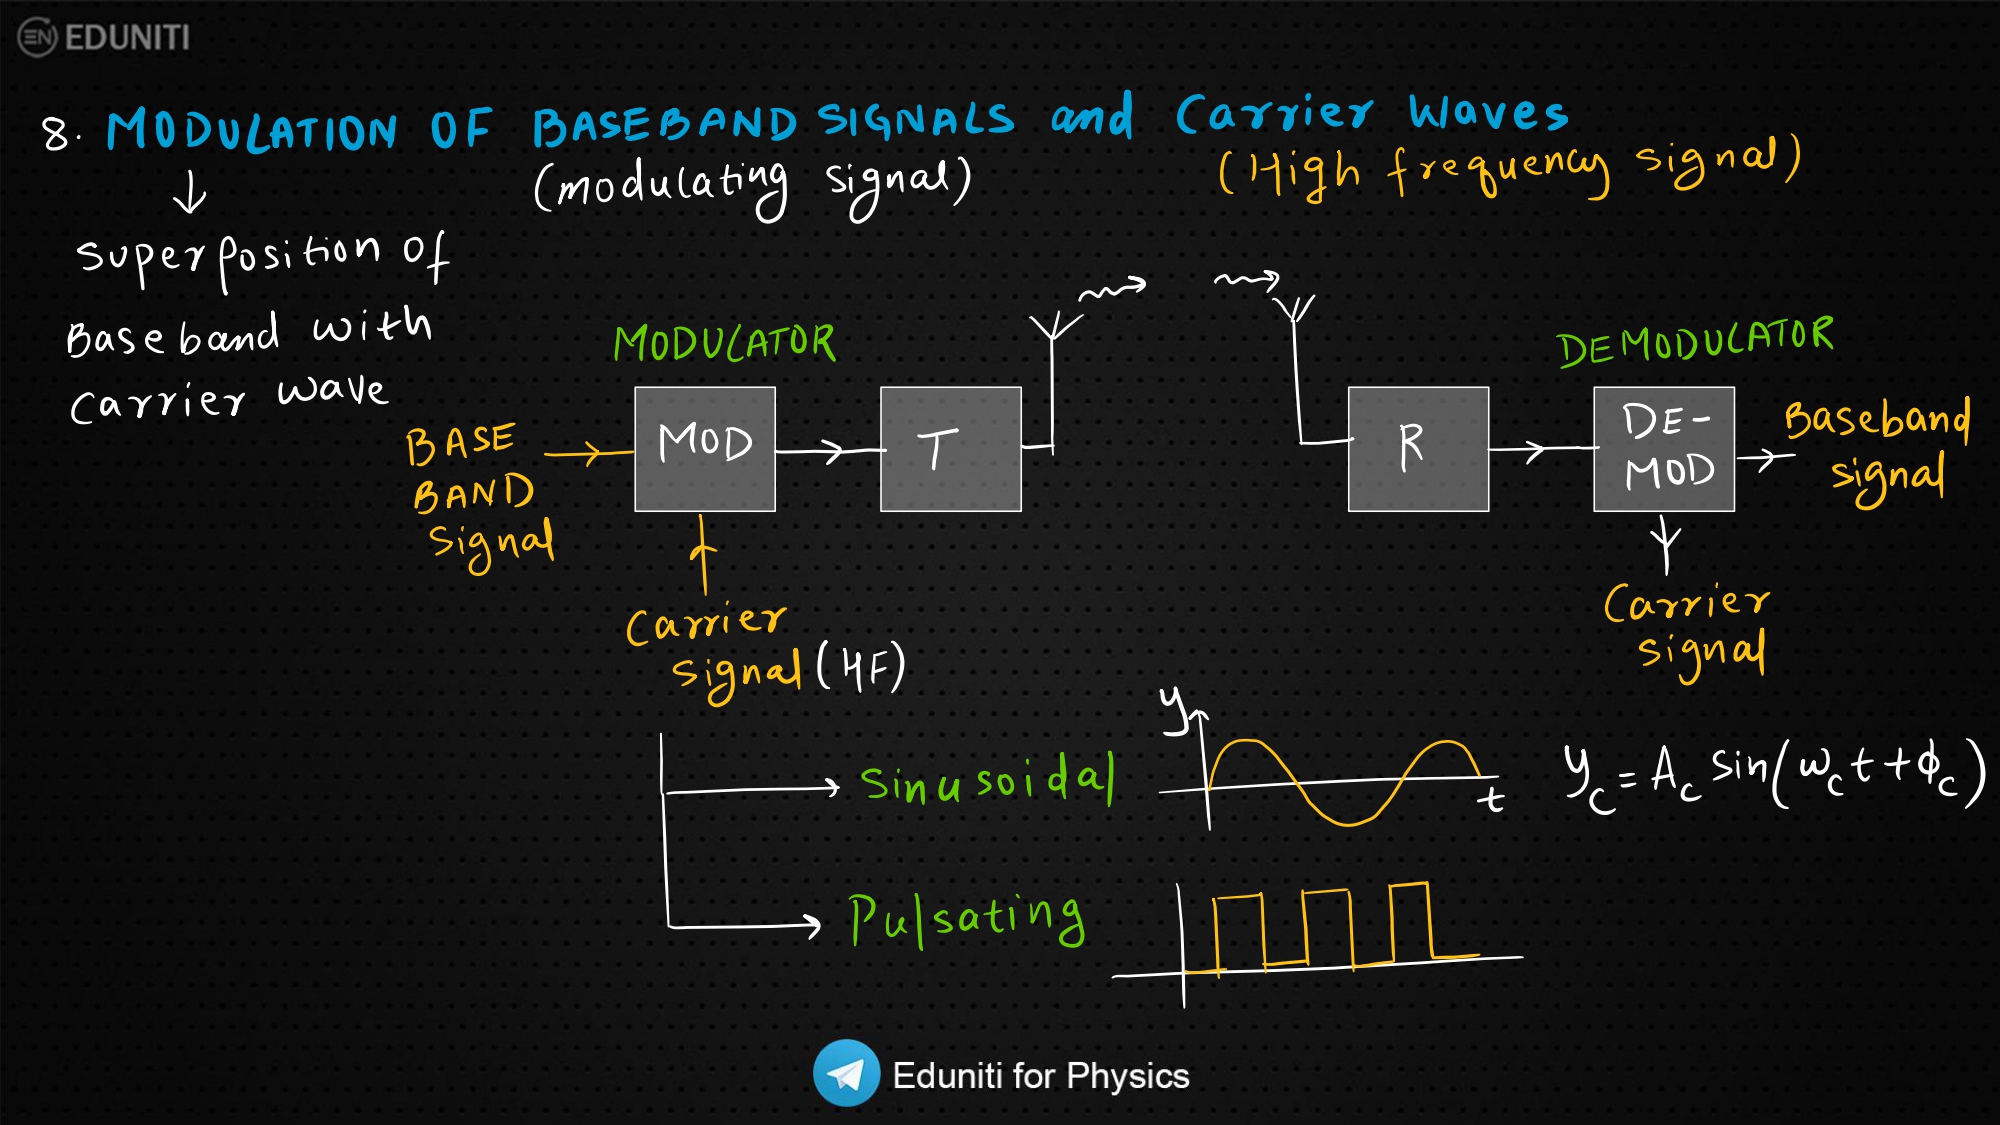 EN EDUNITI
8. MODULATION OF BASEBAND SIGNALS and Carrier Waves
(modulating signal)
(High frequency signal)
Superposition of
Baseband with
Carrier wave
MODULATOR
DEMODULATOR
BASE
BAND
Signal
MOD
T
R
DE-
MOD
Baseband
signal
Carrier
signal (HF)
Carrier
signal
Sinusoidal
y
t
y_c = A_c sin(ω_c t + ϕ_c)
Pulsating
Eduniti for Physics